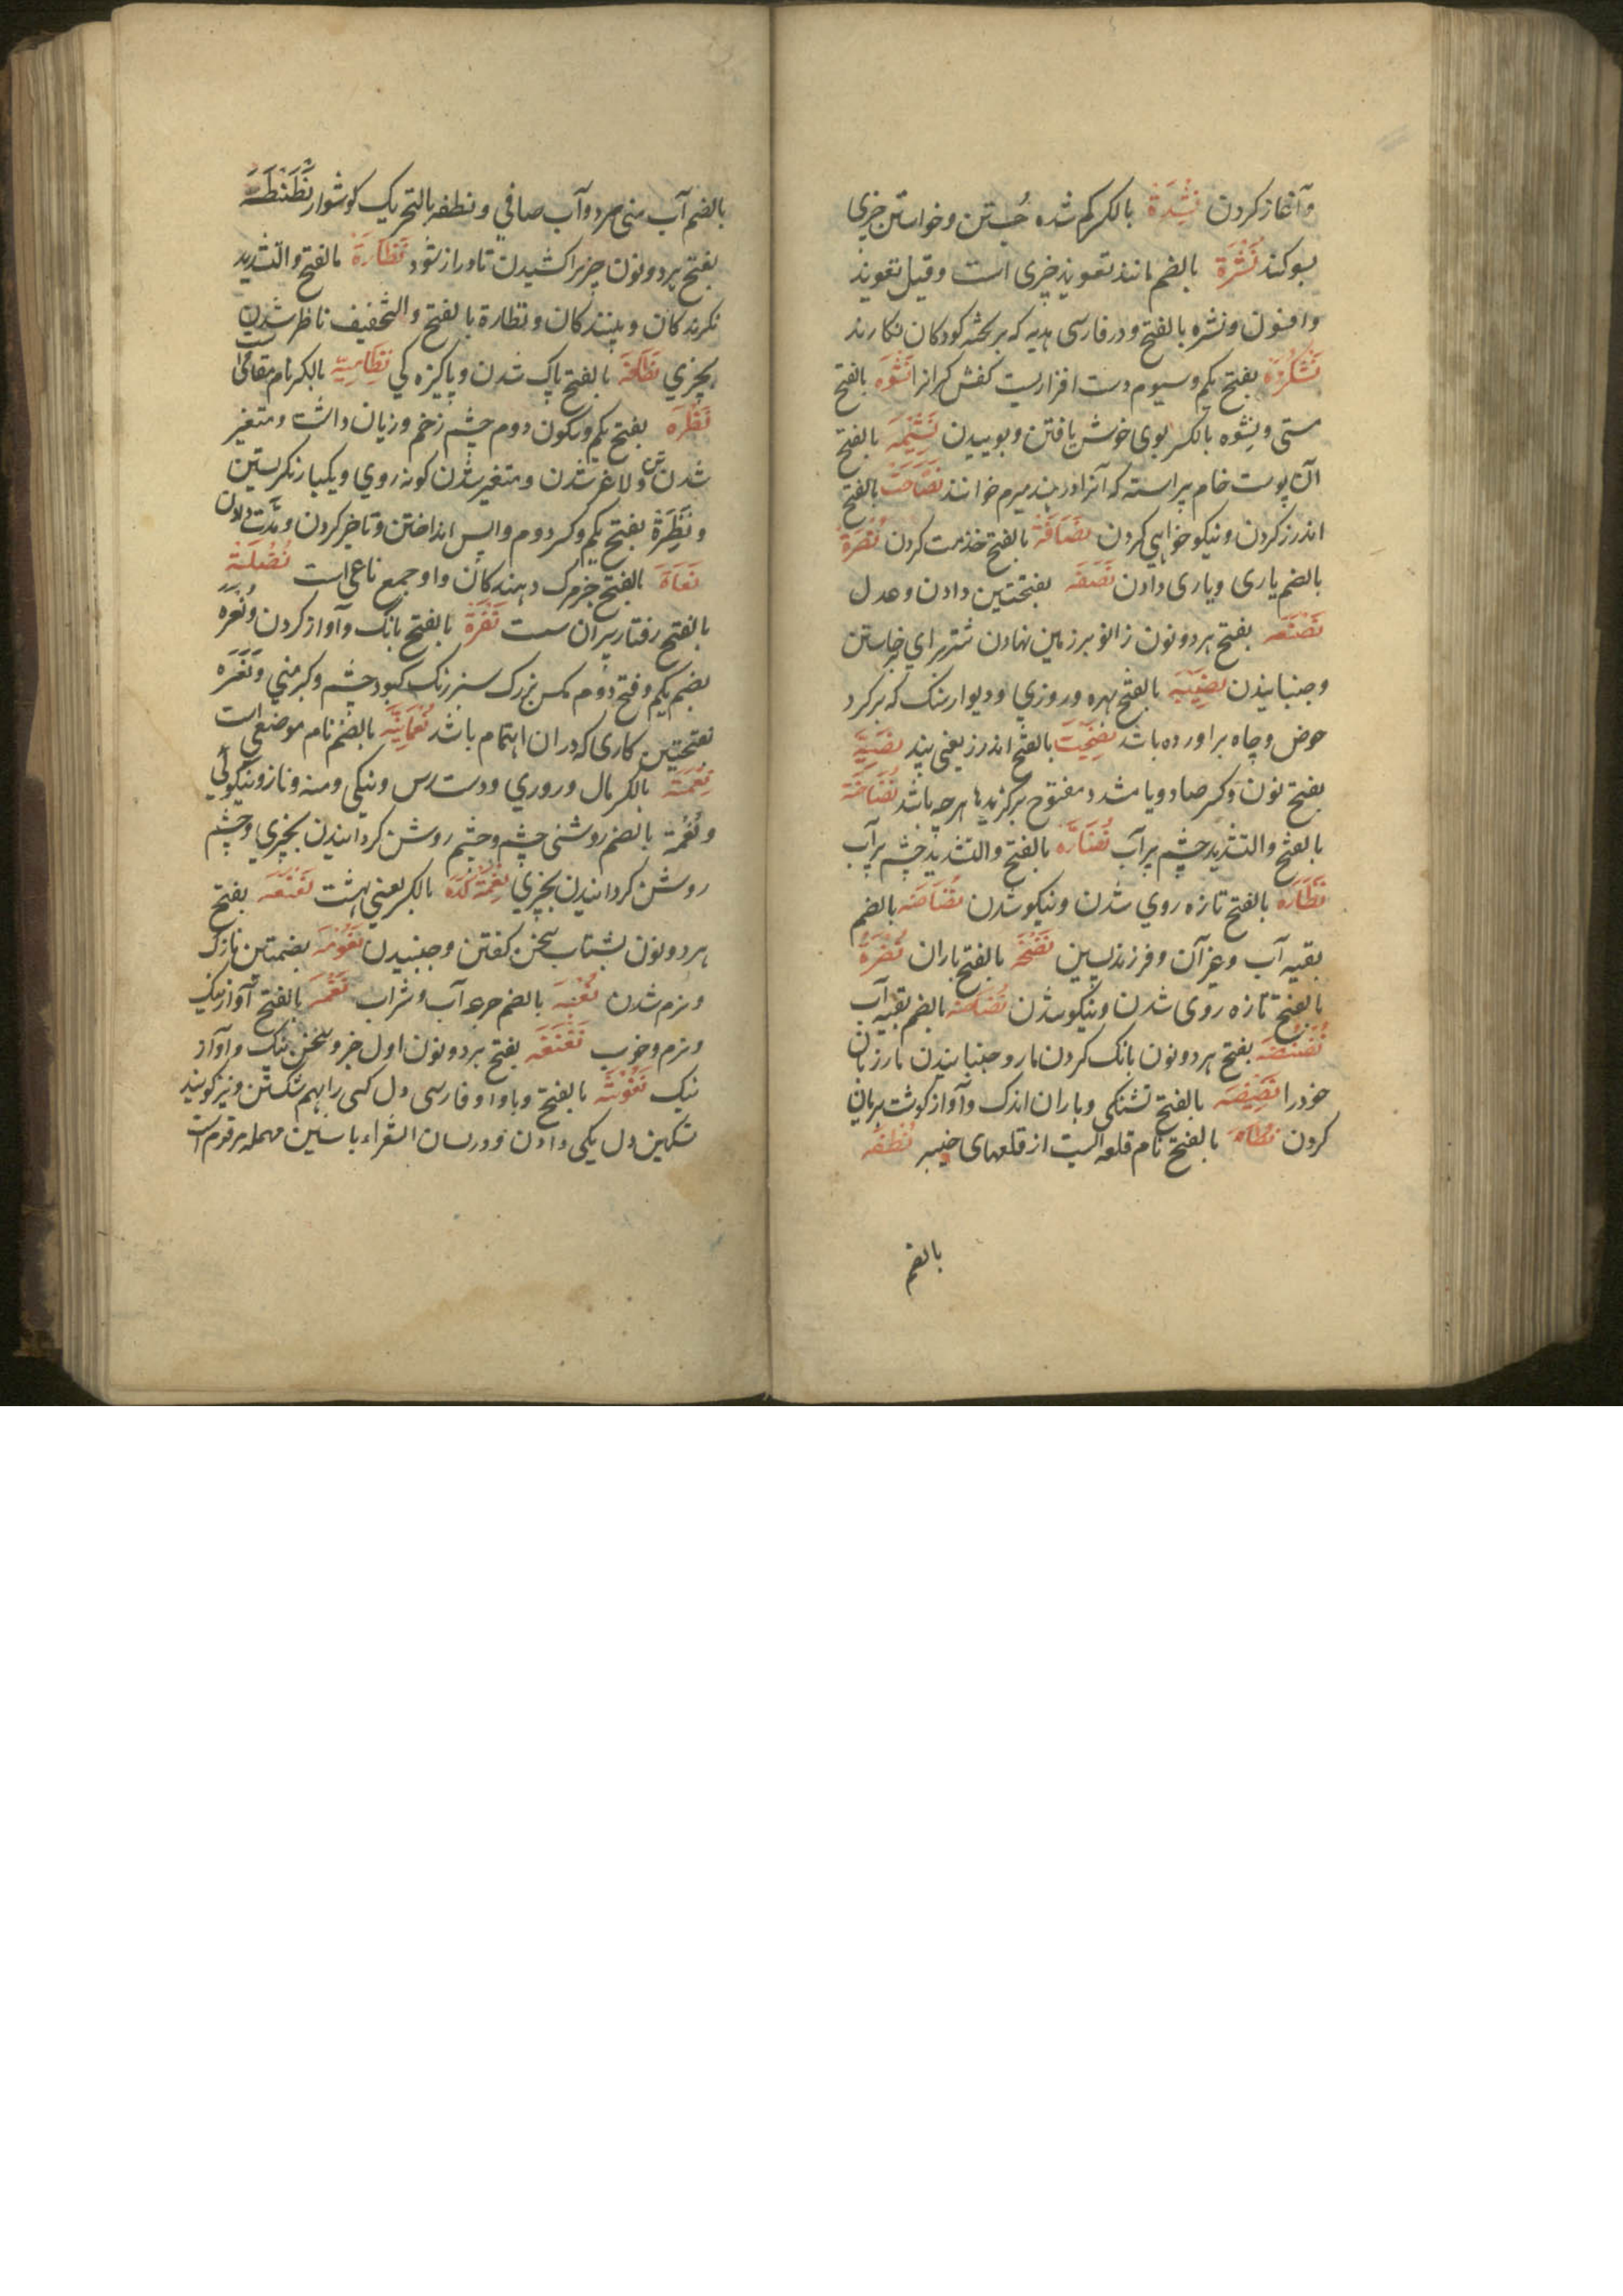 وآغاز کردن نِشْدَة بالکسر کم شده جُستن وخواستن چیزی
بسوکند نُشْرَة بالضم مانند تعویذ چیزی است وقیل تعویذ
وافسون ونشره بالفتح ودر فارسی هدیه که بر تخته کودکان نکارند
بفتح یکم وسیوم دست افزاریست کفش کرانرا نَشْوَه بالفتح
مستی ونِشْوه بالکسر بوی خوش یافتن وبوییدن بالفتح
آن پوست خام پیراسته که آنرا خوانند نَصَاحَت بالفتح
اندرز کردن ونیکو خواهی کردن نَصَافَة بالفتح خدمت کردن نُصْرَة
بالضم یاری ویاری دادن نَصَفَه بفتحتین دادن وعدل
نَصْنَصَه بفتح هر دو نون زانو بر زمین نهادن شتر برای خاستن
وجنبانیدن نصیبه بالفتح بهره وروزی ودیوار سنک که بر کرد
حوض وچاه براورده باشد نصیحت بالفتح اندرز یعنی پند نصیَّة
بفتح نون وکسر صاد ویا مشدد مفتوح برکزیدهٔ هر چه باشد نَضَّاخَة
بالفتح والتشدید چشم پر آب بالفتح والتشدید چشم پر آب
نَضَارَة بالفتح تازه روی شدن ونیکو شدن نُضَاضَه بالضم
بقیه آب وغیر آن وفرزند پسین نَضْحَه بالفتح باران نَضْرَة
بالفتح تازه روی شدن ونیکو شدن بالضم بقیه آب
نَضْنَضَه بفتح هر دو نون بانک کردن مار وجنبانیدن مار زبان
خود را نَضِیضَه بالفتح تشنکی وباران اندک وآواز کوشت بریان
کردن نَطَاة بالفتح نام قلعه ایست از قلعهای خیبر نُطْفَه
بالضم
بالضم آب منی مرد وآب صافی ونطفه بالتحریک کوشوار نَطْنَطَة
بفتح هر دو نون چیزیرا کشیدن تا دراز شود نَظَّارَة بالفتح والتشدید
نکرندکان وبینندکان ونظارة بالفتح والتخفیف ناظر شدن
بچیزی نَظَافَة بالفتح پاک شدن وپاکیزه کی نِظَامِیَّه بالکسر نام مقامی است
نَظْرَه بفتح یکم وسکون دوم چشم زخم وزیان داشت ومتغیر
شدن تن ولاغر شدن ومتغیر شدن کونه روی ویکبار نکریستن
ونَظِرَة بفتح یکم وکسر دوم واپس انداختن وتاخیر کردن ومدت دادن
نَعَاة بالفتح خبر مرک دهندکان واو جمع ناعی است
بالفتح رفتار پیران سست نَعْرَة بالفتح بانک وآواز کردن ونُعَرَه
بضم یکم وفتح دوم مکس بزرک سبز رنک کبود چشم وکبر منی ونَعَرَه
بفتحتین کاری که در ان اهتمام باشد نُعْمَانِیَّه بالضم نام موضعی است
نِعْمَة بالکسر مال وروزی ودست رس ونیکی ومنه وناز ونیکوئی
ونُعْمَة بالضم روشنی چشم وچشم روشن کردانیدن بچیزی وچشم
روشن کردانیدن بچیزی نِعْمَتْ کَدَه بالکسر یعنی بهشت نَعْنَعَه بفتح
هر دو نون بشتاب سخن کفتن وجنبیدن نُعُومَة بضمتین نازک
ونرم شدن نُغْبَه بالضم جرعه آب وشراب نَغْمَه بالفتح آواز نیک
ونرم وخوب نَغْنَغَه بفتح هر دو نون اول وسخن نیک وآواز
نیک بالفتح وبا واو فارسی دل کسی را بهم شکستن ونیز کویند
تسکین دل یکی دادن ودر لسان الشعراء با سین مهمله مرقوم است